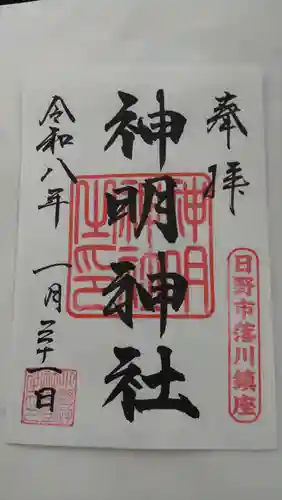 奉拝
日野市落川鎮座
神明神社
神明神社之印
令和八年一月三十一日